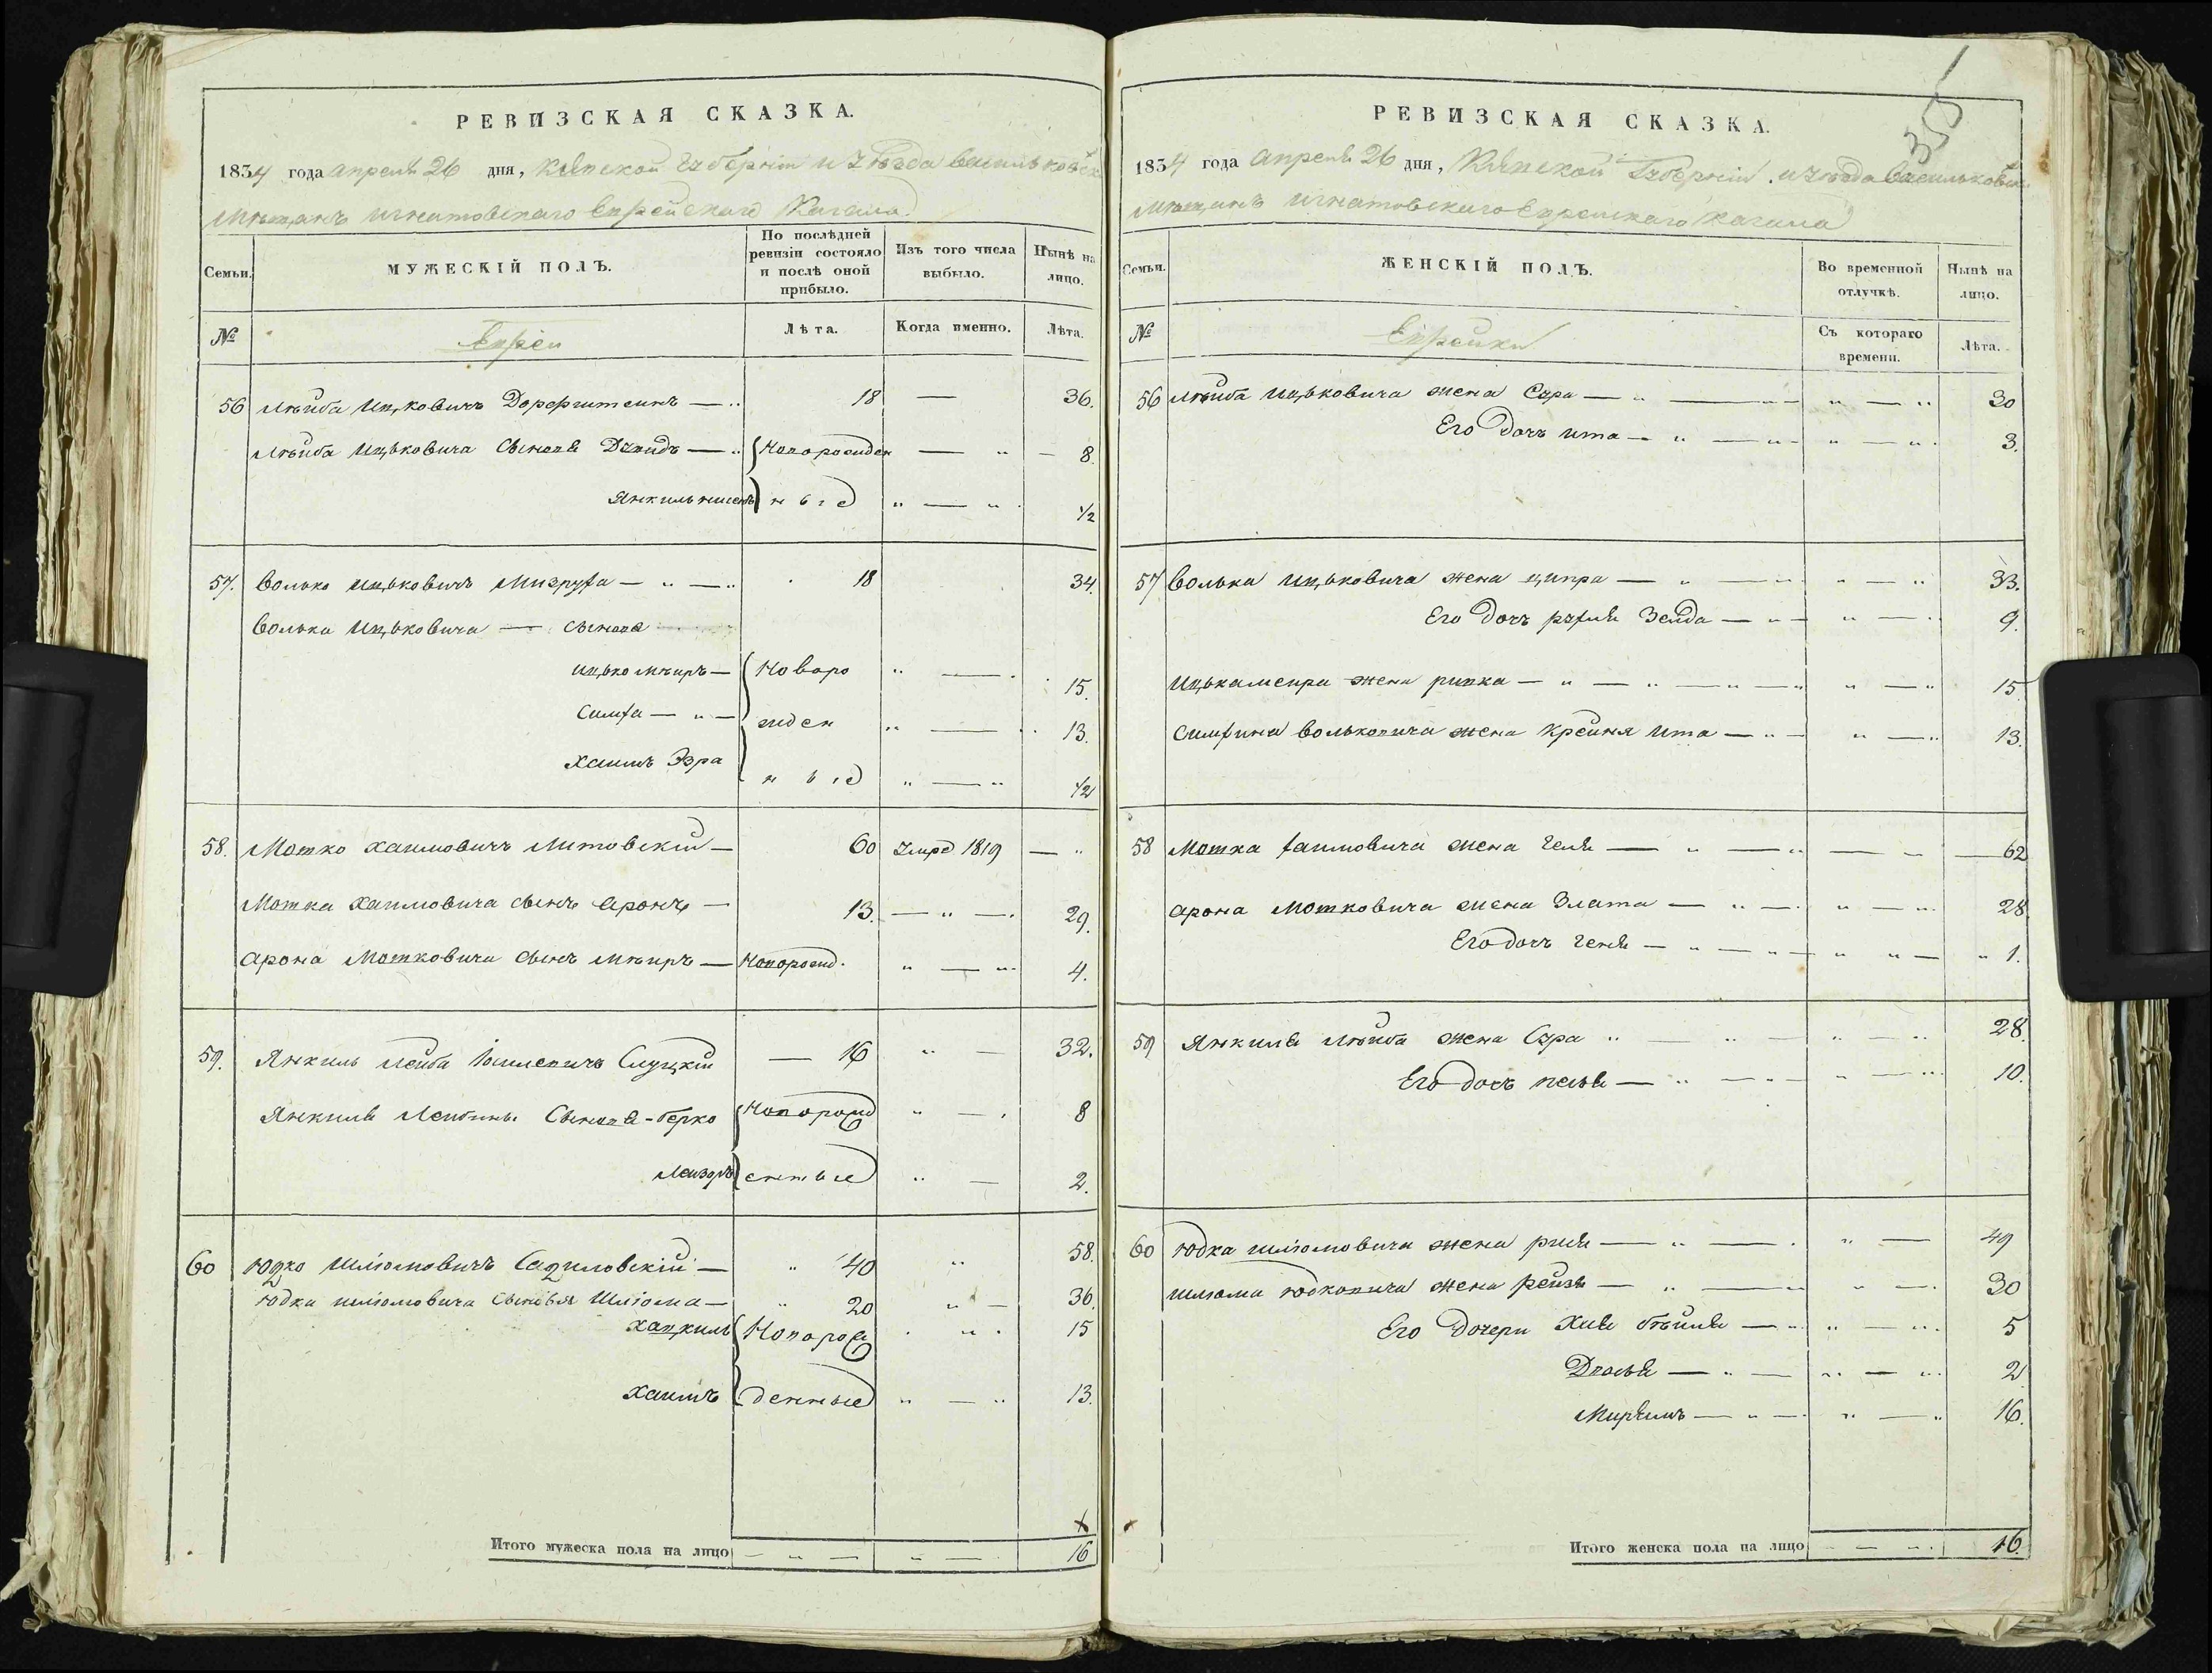 РЕВИЗСКАЯ СКАЗКА.
1834 года апреля 26 дня, Кіевской Губерніи и уѣзда Васильковск
мѣщанъ игнатовскаго Еврейскаго Кагала
Семьи. МУЖЕСКІЙ ПОЛЪ. По послѣдней ревизіи состояло и послѣ оной прибыло. Изъ того числа выбыло. Нынѣ на лицо.
№ Евреи Лѣта. Когда именно. Лѣта.
56 Лѣйба Ицковичъ — 18 — 36.
Лѣйба Ицьковича Сыновя Давидъ — Новорожден — 8.
Янкиль ные — ½
57. Волько Ицьковичъ — 18 34.
Волька Ицьковича — сыновя
Ицько мѣиръ — Новоро — 15.
Симха — жден — 13.
Хаимъ Эзра ные — ½
58. Мошко Хаимовичъ Литовскій — 60 умре 1819 —
Мошка Хаимовича сынъ Аронъ — 13. — 29.
Арона Мошковича сынъ Мѣиръ — Новорожд. — 4.
59. Янкиль Лейба Слуцкій — 16 — 32.
Янкиля Лейбины Сыновя - Берко Новорожд — 8
Лейзоръ енные — 2.
60 Юдко Шліомовичъ Садиловскій — 40 58.
Юдка шліомовича сыновья Шліома — 20 — 36.
Хацкиль Новорож 15
Хаимъ денные — 13.
Итого мужеска пола на лицо — 16
355
РЕВИЗСКАЯ СКАЗКА.
1834 года апреля 26 дня, Кіевской Губерніи. и уѣзда Васильковск
мѣщанъ игнатовскаго Еврейскаго Кагала
Семьи. ЖЕНСКІЙ ПОЛЪ. Во временной отлучкѣ. Нынѣ на лицо.
№ Еврейки Съ котораго времени. Лѣта.
56 Лѣйба Ицьковича жена Сура — 30
Его дочъ ита — 3.
57 Волька Ицьковича жена ципра — 33.
Его дочъ рухля Зейда — 9.
Ицькамеира жена ривка — 15
Симхина Вольковича жена Крейня Ита — 13.
58 Мошка хаимовича жена Геля — 62
Арона Мошковича жена Злата — 28
Его дочъ Геня — 1.
59 Янкиля Лѣйба жена Сура — 28.
Его дочъ песя — 10.
60 Юдка шліомовича жена — 49
шліома юдковича жена рейзя — 30
Его дочери Хая бѣйля — 5
Двося — 2
Мирямъ — 16.
Итого женска пола на лицо — 16.